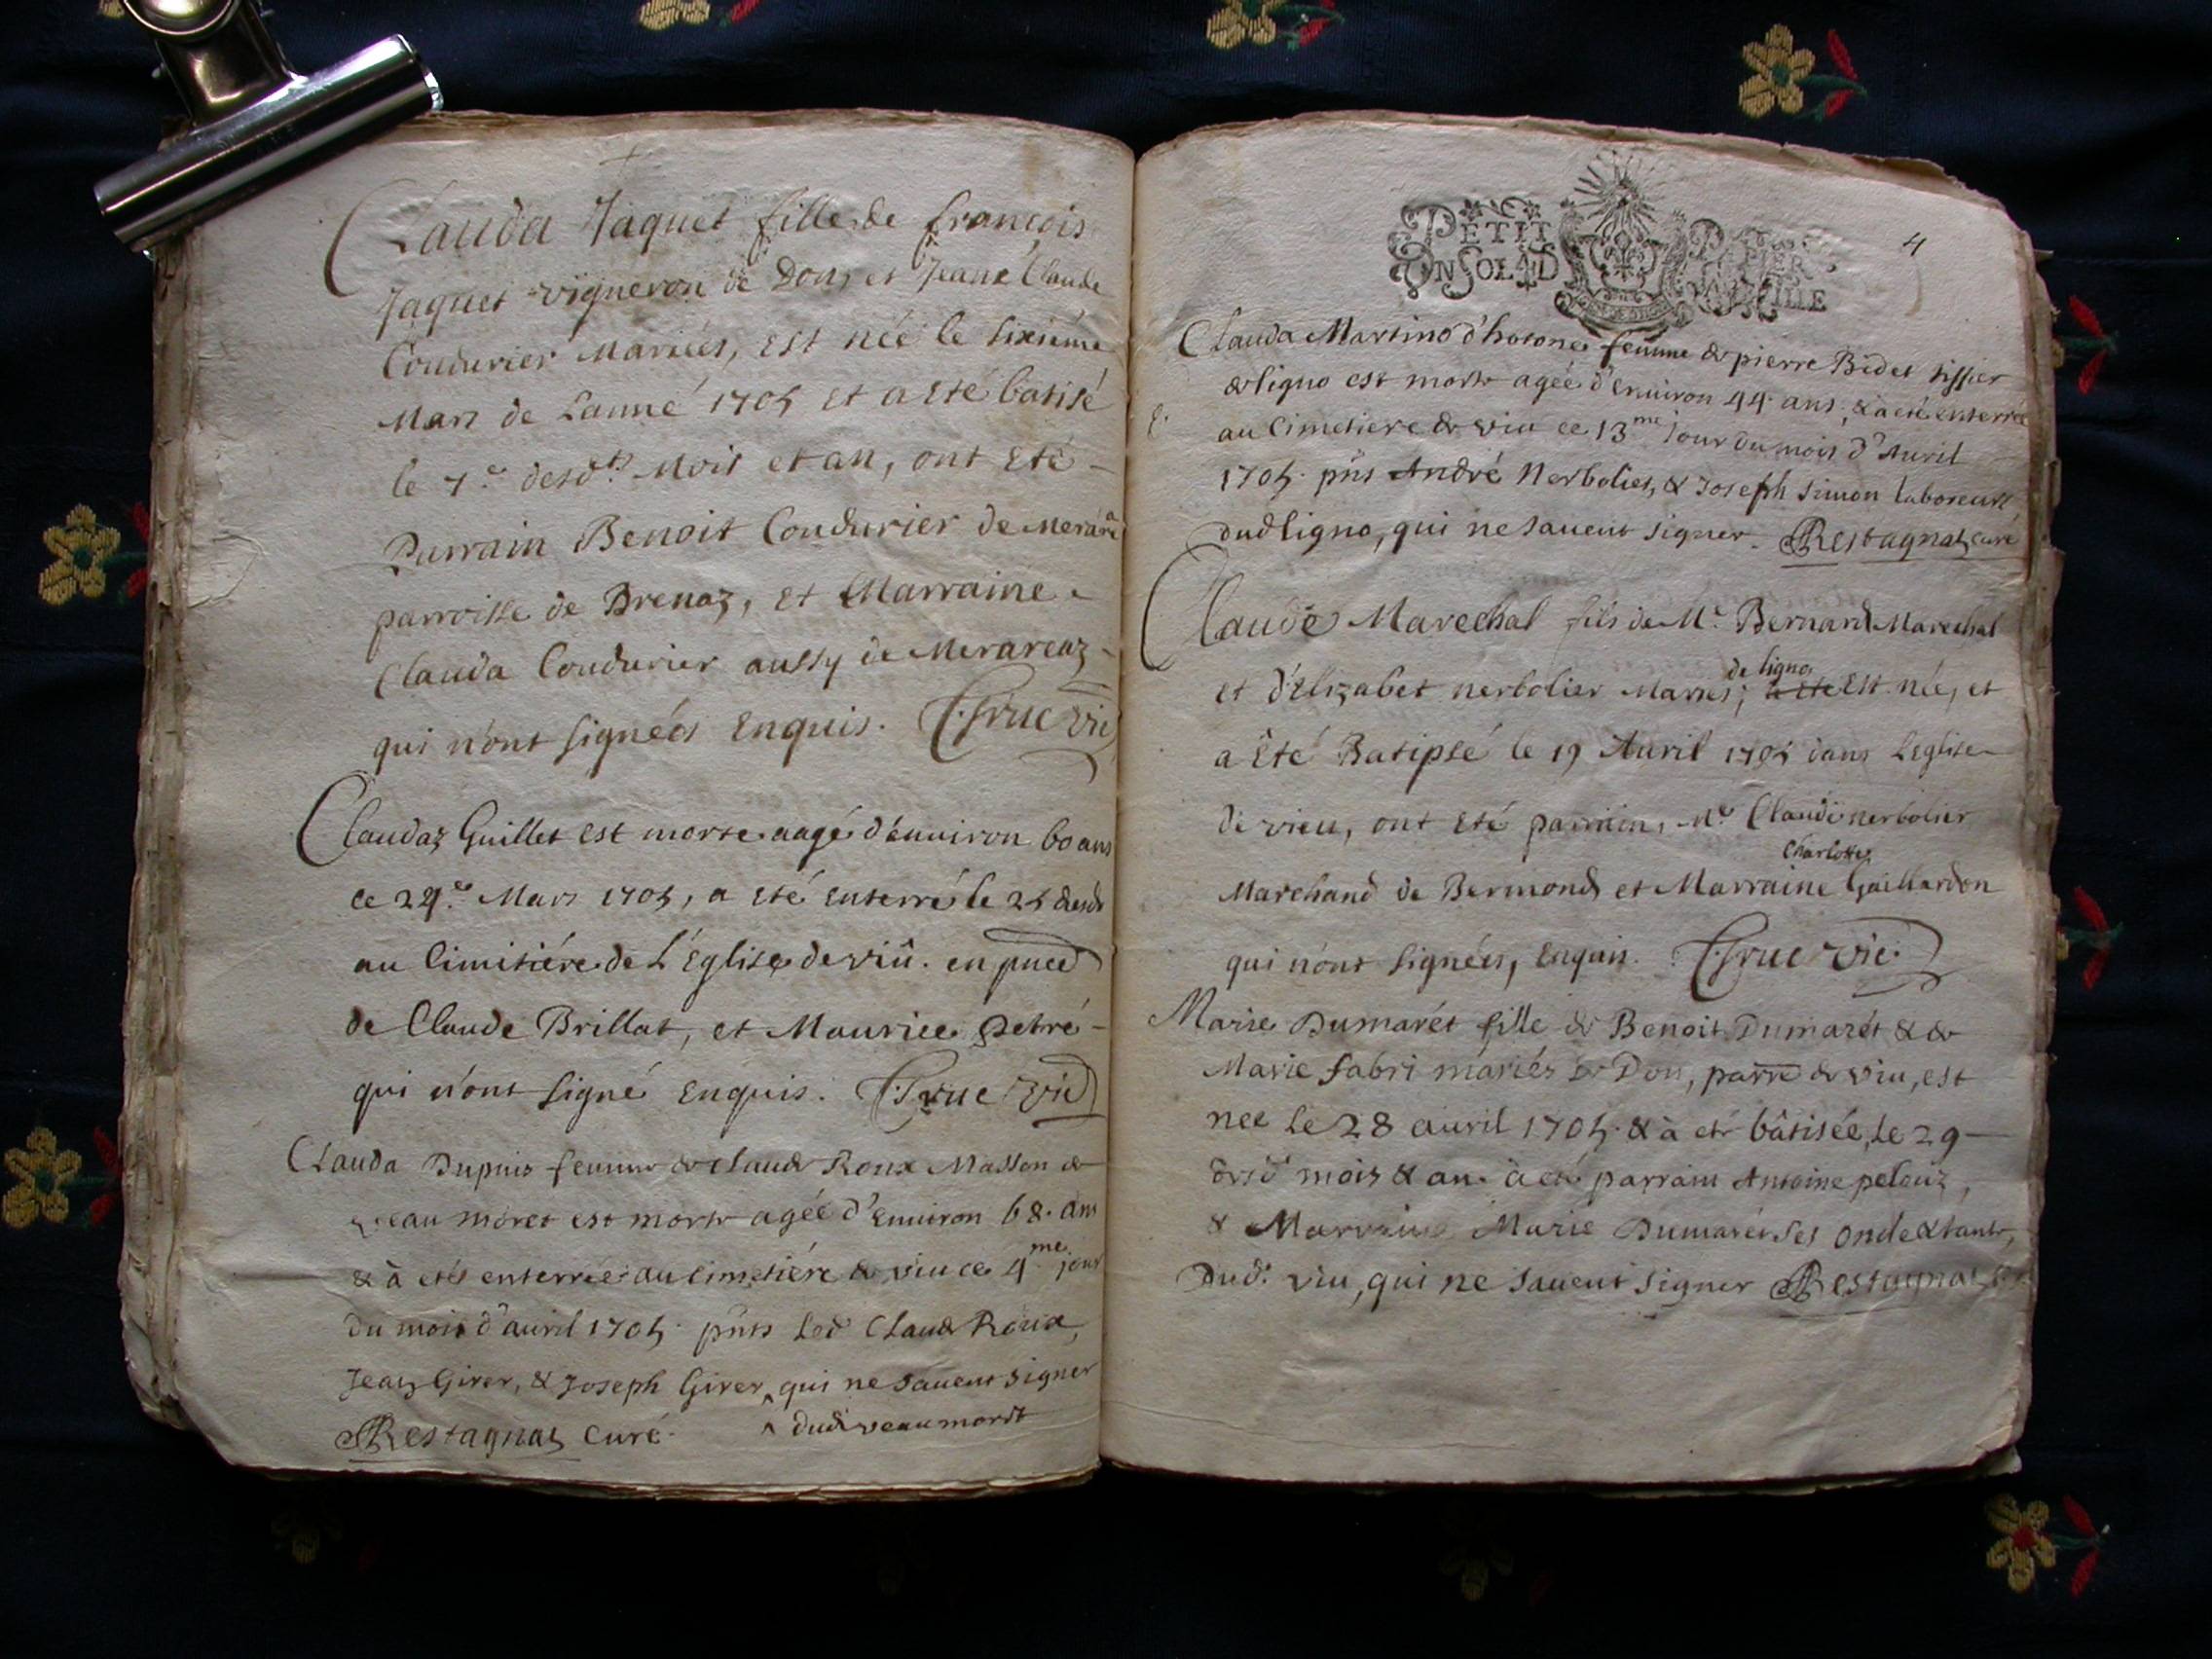 Clauda Jaquet fille de francois
Jaquet vigneron de Don, et Jeane Claude
Coudurier Mariées, est née le sixiéme
Mars de Lanné 1705 et a eté batisé
le 7.e desdts Mois et an, ont eté
Parrain Benoit Coudurier de
parroisse de Brenaz, et Marraine
Clauda Coudurier aussy de Merareaz
qui n'ont signées enquis. Truc vic
Claudaz Guillet est morte aagé d'enuiron 60 ans
ce 24.e Mars 1705, a eté enterré le 25
au Cimitiére de L'Eglise de viû. en
de Claude Brillat, et Maurice Petré
qui n'ont signé enquis. Truc vic
Clauda Dupuis femme de Claude Roux Masson de
veau moret est morte agée d'enuiron 68. ans
& à etée enterrée au Cimetiére de viu ce 4me jour
du mois d'auril 1705. pnts Led Claude Roux,
Jean Girer, & Joseph Girer ^ qui ne sauent signer
Restagnat Curé. ^ dud veaumoret
PETIT PAPIER
UN SOL 4 D LA FEUILLE
4
Clauda Martino d'hotone femme de pierre Bidet tissier
de ligno est morte agée d'enuiron 44 ans, & a eté enterrée
au Cimetiere de viu ce 13me jour du mois d'Auril
1705. pnts André Nerbolier, & Joseph Simon laboreurs
dud ligno, qui ne sauent signer. Restagnat curé
Claude Marechal fils de Mr. Bernard Marechal
de ligno
et d'Elizabet nerbolier Mariés; est née, et
a Eté Batipsé le 19 Auril 1705 dans L'eglise
de vieu, ont eté parrain, Mr Claude nerbolier
Charlotte
Marchand de Bermond et Marraine Gaillardon
qui n'ont signées, enquis. Truc vic.
Marie Dumarét fille de Benoit Dumarét & de
Marie fabri máriés de Don, parre de viu, est
nee le 28 auril 1705. & à eté bâtisée, le 29
desd mois & an. à eté parrain Antoine pelouz,
& Marraine Marie Dumarét ses oncle & tante,
Dud. viu, qui ne sauent signer Restagnat